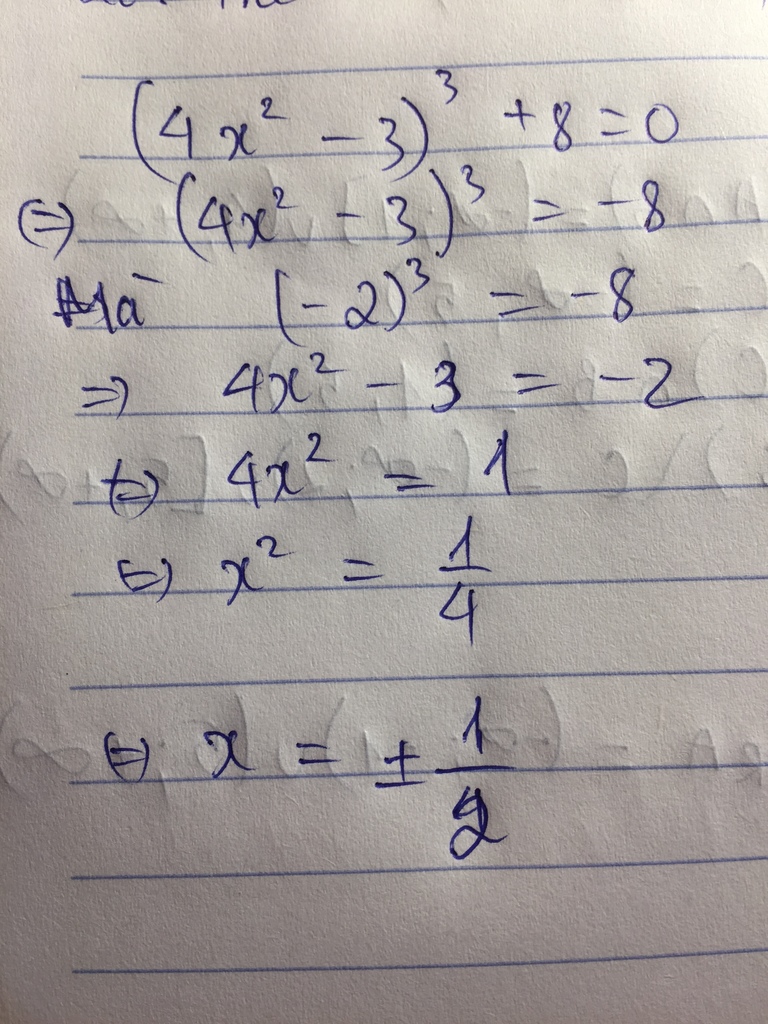 (4x² - 3)³ + 8 = 0
⇔ (4x² - 3)³ = -8
Mà (-2)³ = -8
⇒ 4x² - 3 = -2
⇔ 4x² = 1
⇔ x² = 1/4
⇔ x = ± 1/2